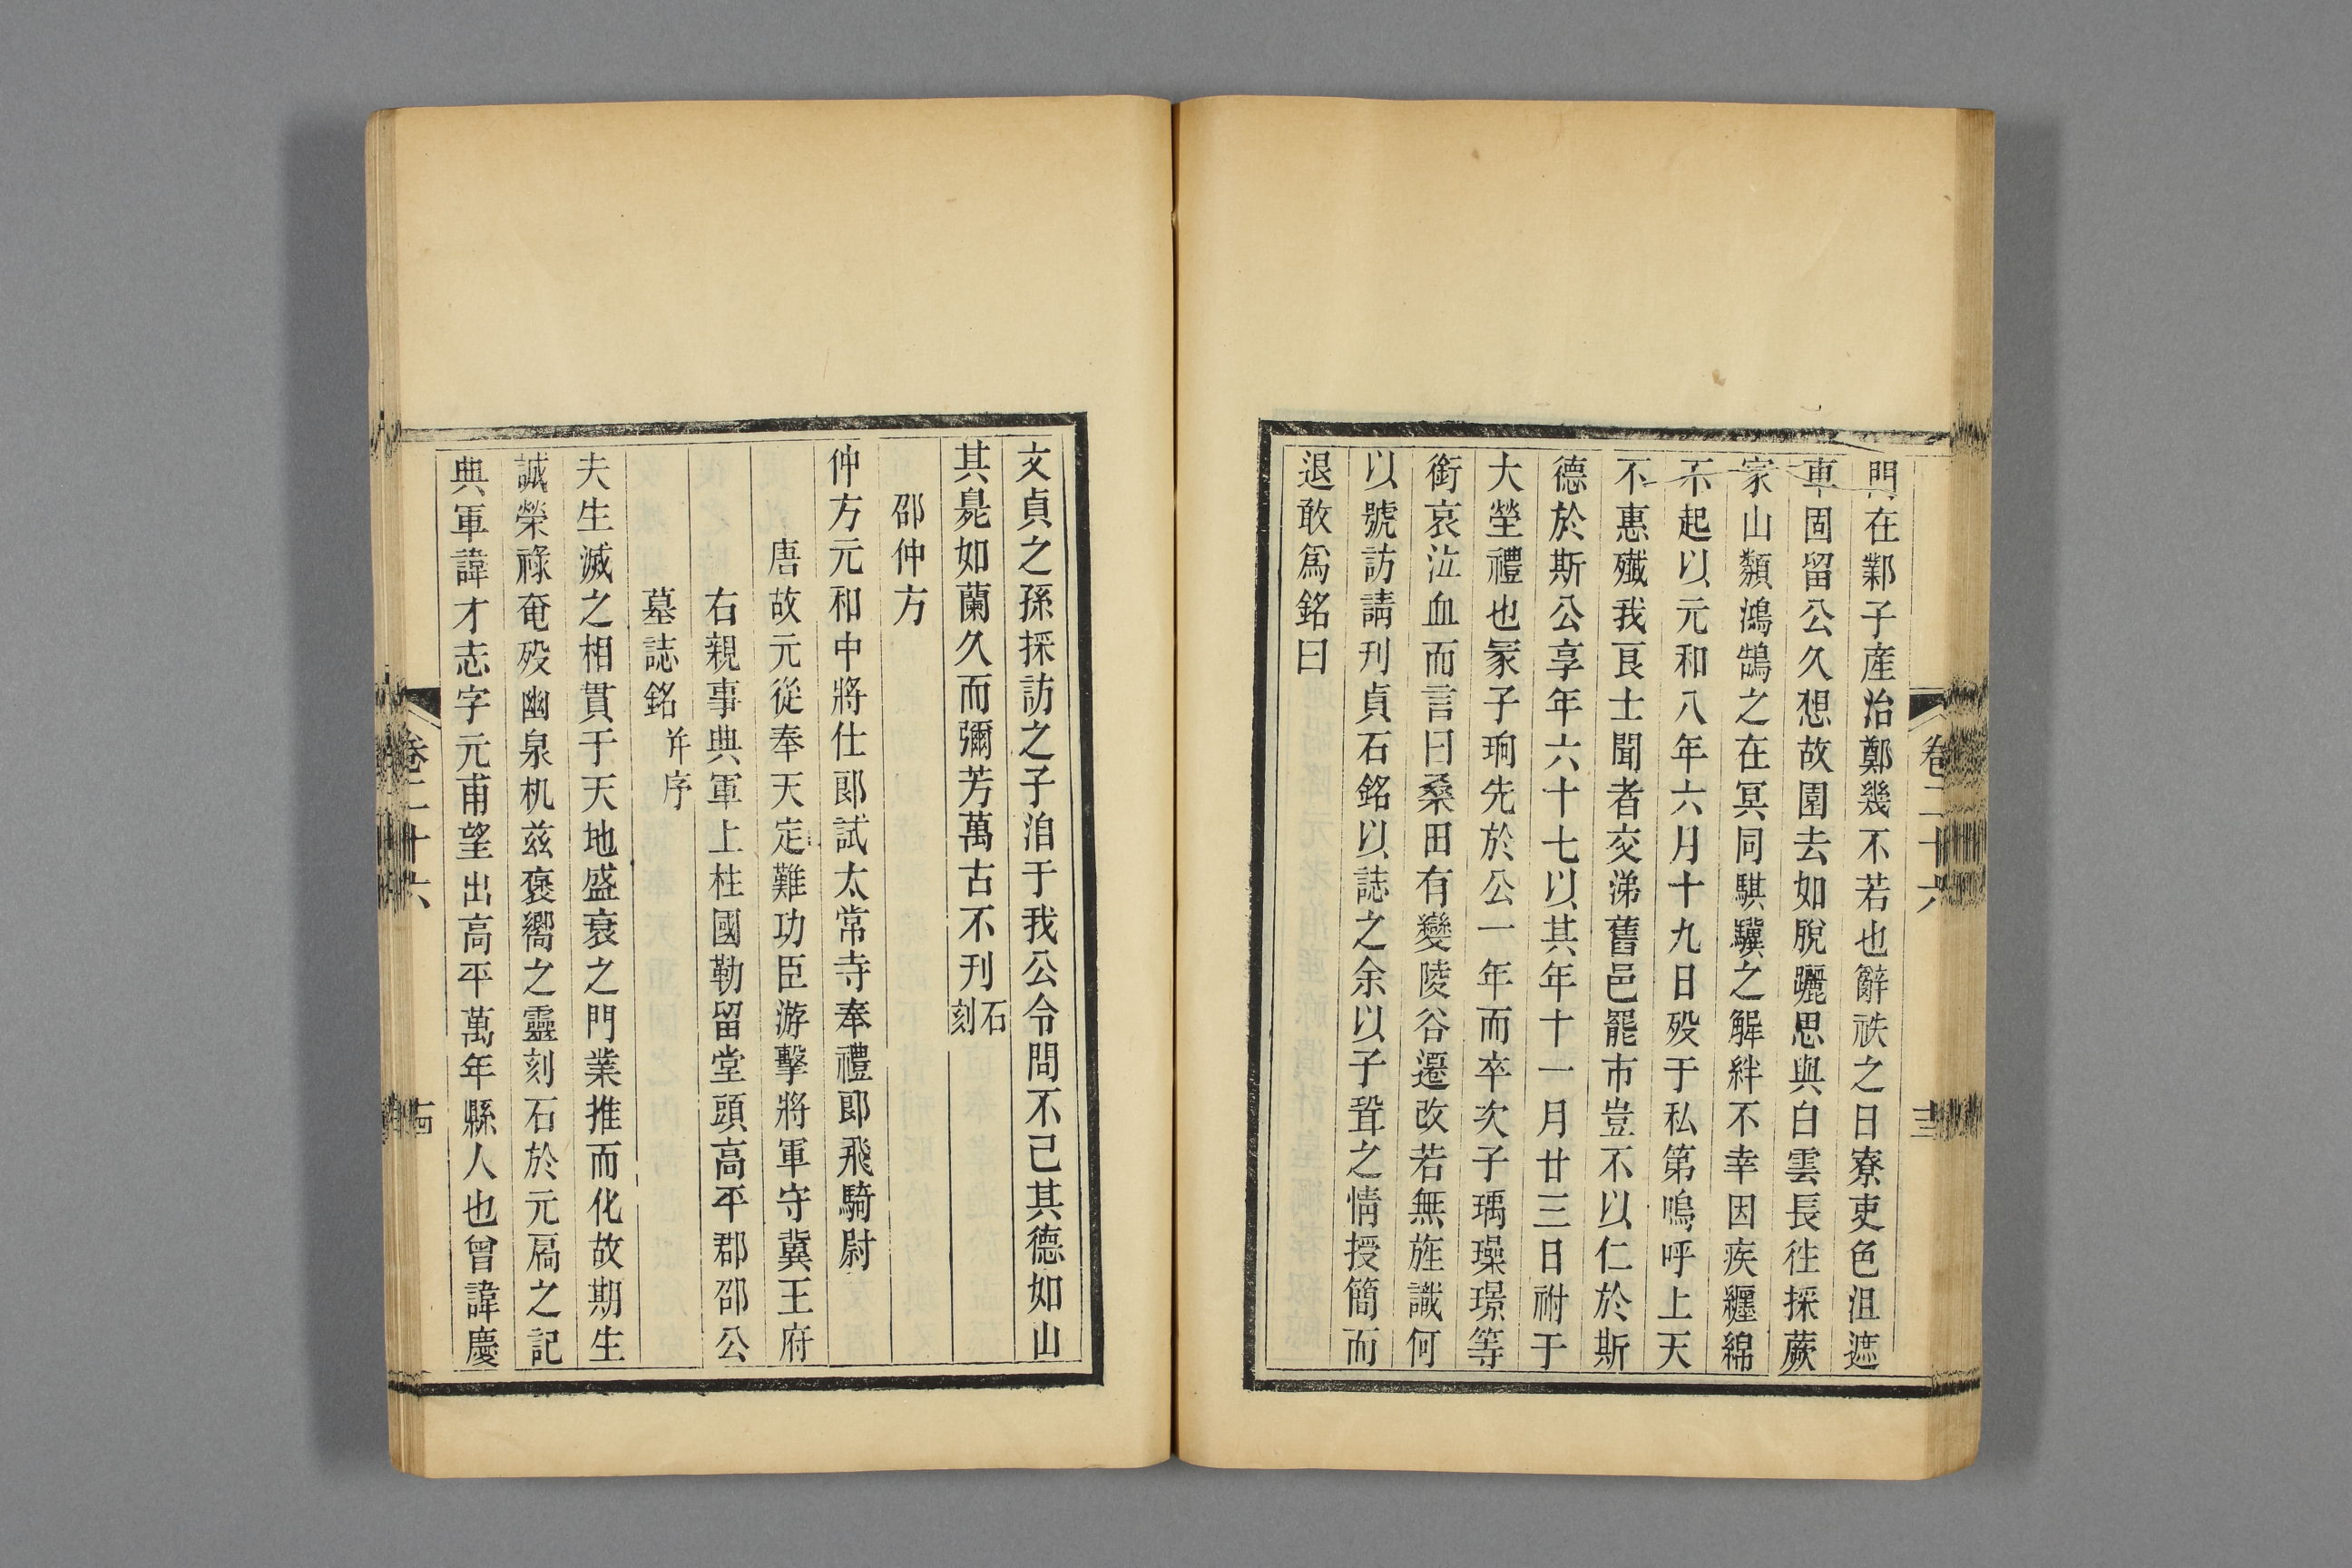 門在鄴子產治鄭幾不若也辭祑之日寮吏色沮遮
車固留公久想故園去如脫曬思與白雲長徃採蕨
家山纇鴻鵠之在冥同騏驥之觧絆不幸因疾纒綿
不起以元和八年六月十九日歿于私第嗚呼上天
不惠殲我良士聞者交涕舊邑罷市豈不以仁於斯
德於斯公享年六十七以其年十一月廿三日祔于
大塋禮也冡子珦先於公一年而卒次子瑀璪璟等
銜哀泣血而言曰桑田有變陵谷遷改若無旌識何
以號訪請刋貞石銘以誌之余以子聓之情授簡而
退敢爲銘曰
卷二十六
文貞之孫採訪之子洎于我公令問不已其德如山
其臭如蘭久而彌芳萬古不刋石刻
邵仲方
仲方元和中將仕郎試太常寺奉禮郎飛騎尉
唐故元從奉天定難功臣游擊將軍守冀王府
右親事典軍上柱國勒留堂頭高平郡邵公
墓誌銘并序
夫生滅之相貫于天地盛衰之門業推而化故期生
誠榮祿奄歿幽泉机兹褒嚮之靈刻石於元扄之記
典軍諱才志字元甫望出高平萬年縣人也曾諱慶
卷二十六